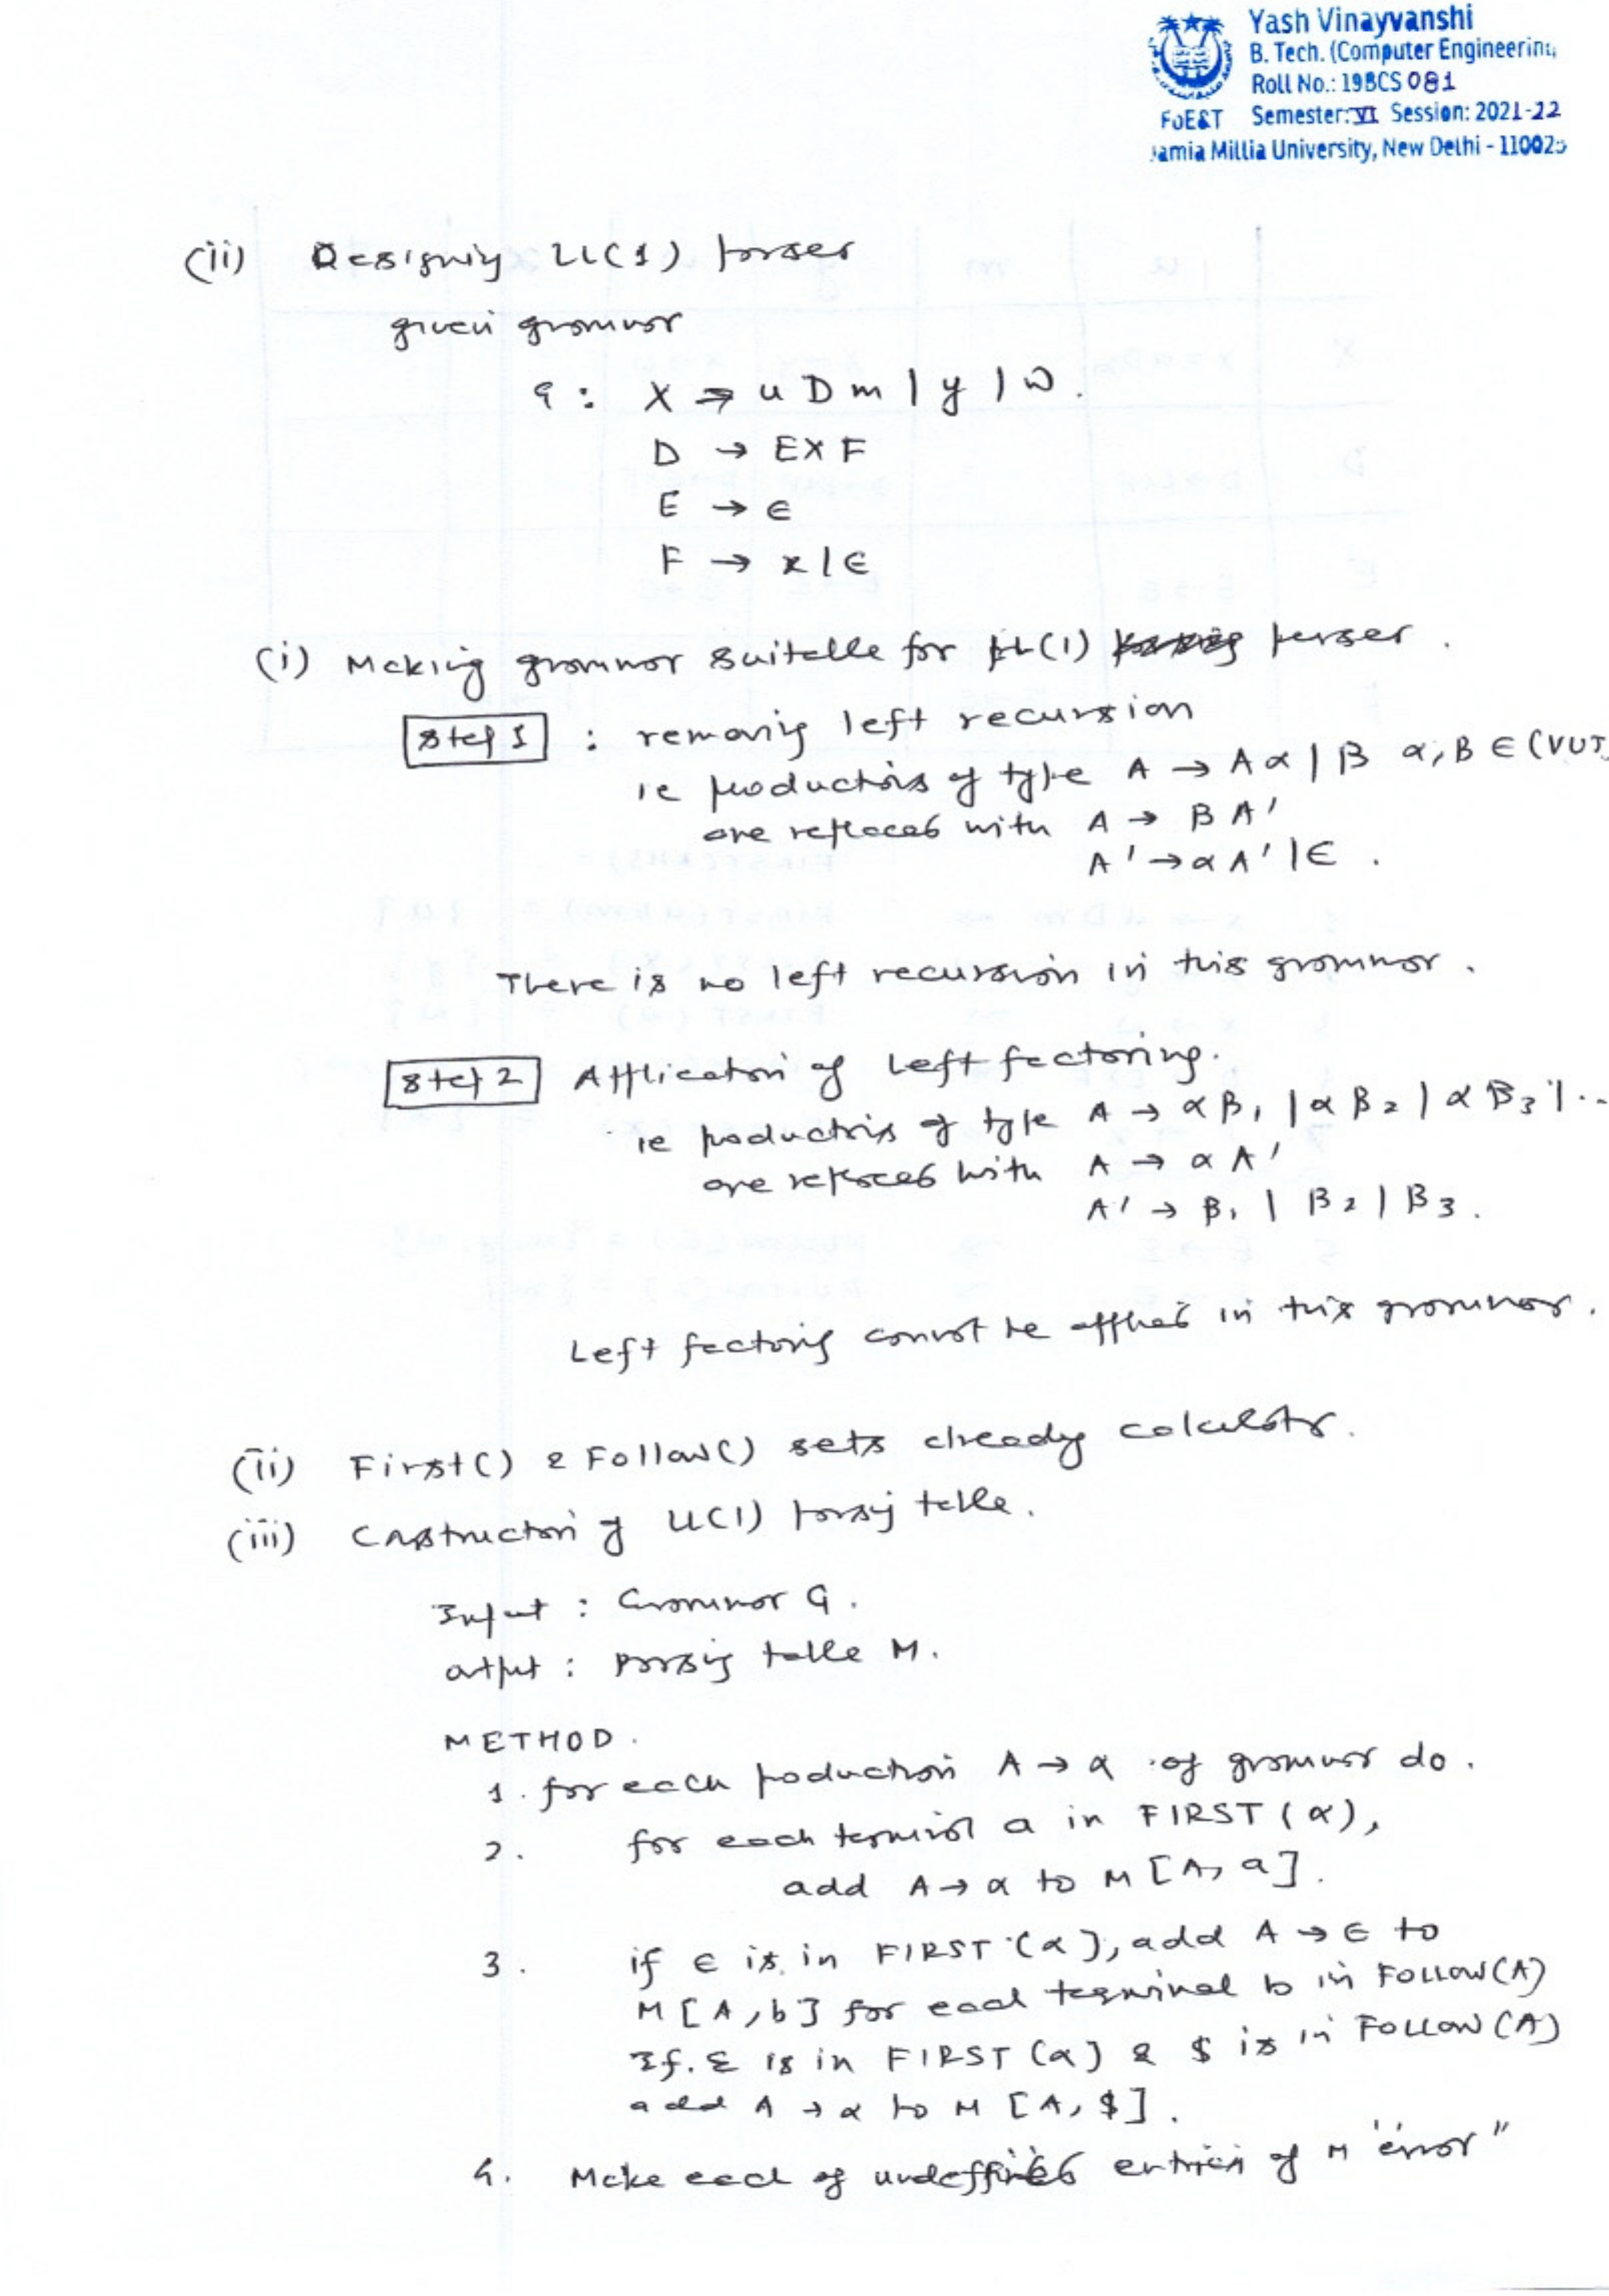 Yash Vinayvanshi
B. Tech. (Computer Engineering
Roll No.: 19BCS 081
FoE&T Semester: VI Session: 2021-22
Jamia Millia University, New Delhi - 110025
(ii) Designing LL(1) parser
given grammar
G : X → u D m | y | w .
D → E X F
E → ∈
F → x | ∈
(i) Making grammar suitable for LL(1) parser .
Step 1 : removing left recursion
ie productions of type A → A α | β α, β ∈ (VUT
are replaced with A → β A'
A' → α A' | ∈ .
There is no left recursion in this grammar .
Step 2 Application of Left factoring.
ie productions of type A → α β1 | α β2 | α β3 | ..
are replaced with A → α A'
A' → β1 | β2 | β3 .
Left factoring cannot be applied in this grammar .
(ii) First() & Follow() sets already calculate.
(iii) Construction of LL(1) parsing table .
Input : Grammar G .
output : Parsing table M .
METHOD .
1. for each production A → α of grammar do .
2. for each terminal a in FIRST (α) ,
add A → α to M [A, a] .
3. if ∈ is in FIRST (α), add A → ∈ to
M [A, b] for each terminal b in FOLLOW(A)
If ε is in FIRST (α) & $ is in FOLLOW (A)
add A → α to M [A, $] .
4. Make each of undeffined entries of M "error"